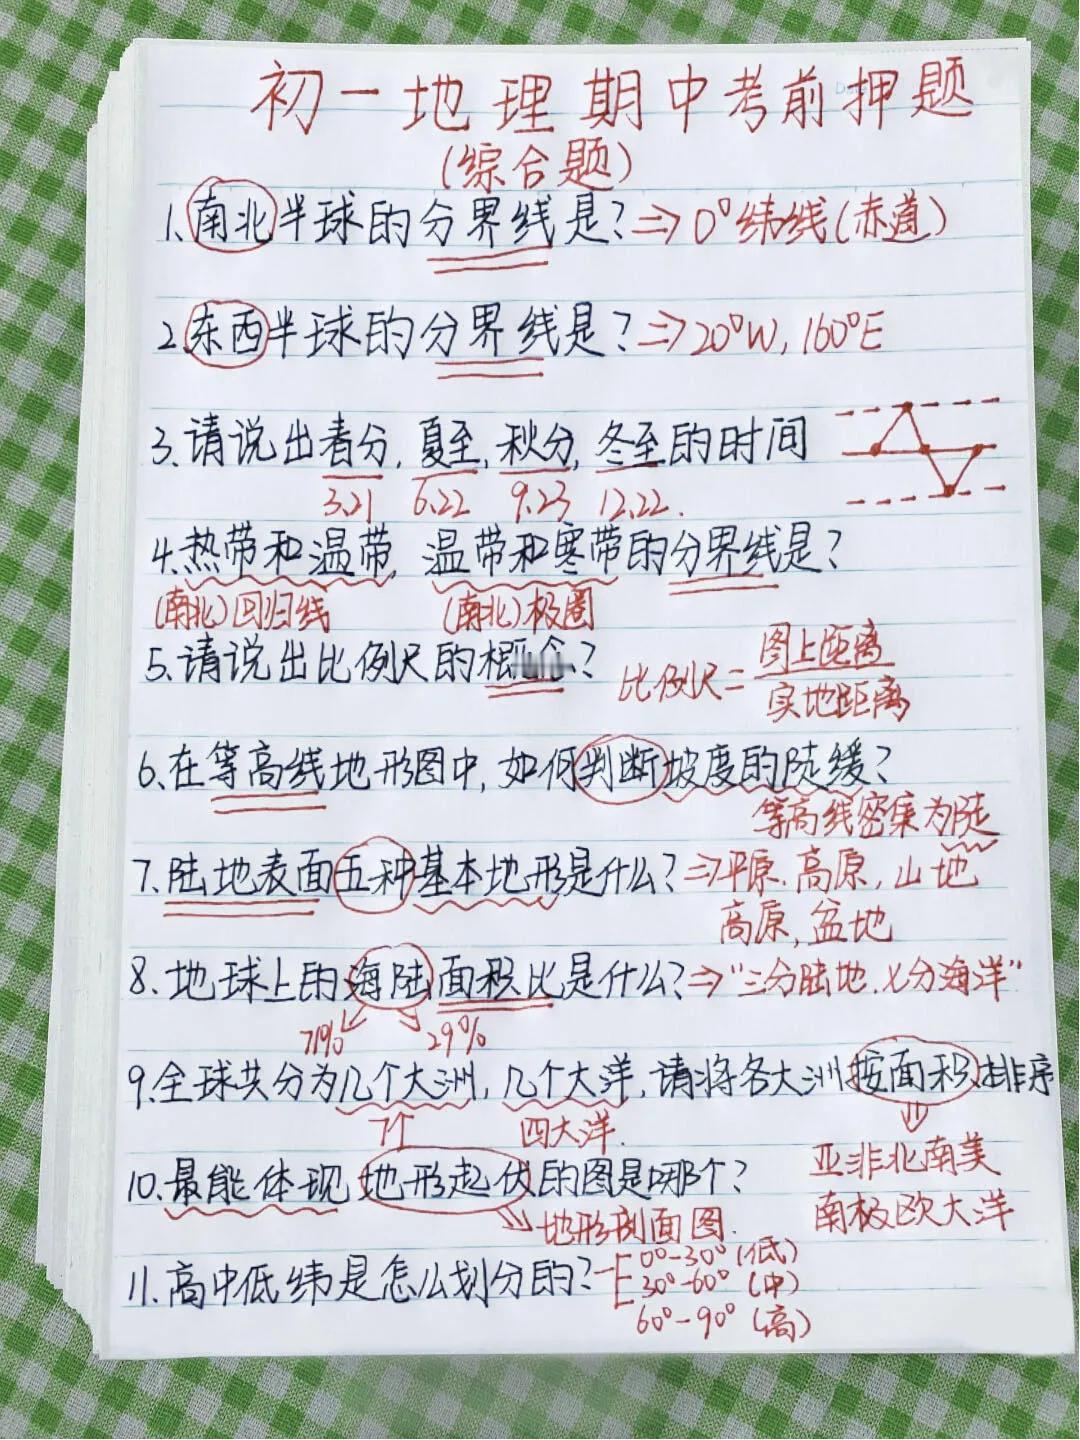 初一地理期中考前押题
(综合题)
1、南北半球的分界线是?⇒0°纬线(赤道)
2、东西半球的分界线是?⇒20°W,160°E
3、请说出春分,夏至,秋分,冬至的时间
3.21 6.22 9.23 12.22.
4、热带和温带,温带和寒带的分界线是?
(南北)回归线 (南北)极圈
5、请说出比例尺的概念? 比例尺=图上距离/实地距离
6、在等高线地形图中,如何判断坡度的陡缓?
等高线密集为陡
7、陆地表面五种基本地形是什么?⇒平原、高原,山地
高原,盆地
8、地球上的海陆面积比是什么?⇒"三分陆地、七分海洋"
71% 29%
9、全球共分为几个大洲,几个大洋,请将各大洲按面积排序
7个 四大洋.
亚非北南美
10、最能体现地形起伏的图是哪个?
南极欧大洋
地形剖面图.
11、高中低纬是怎么划分的?
0°-30°(低)
30°-60°(中)
60°-90°(高)